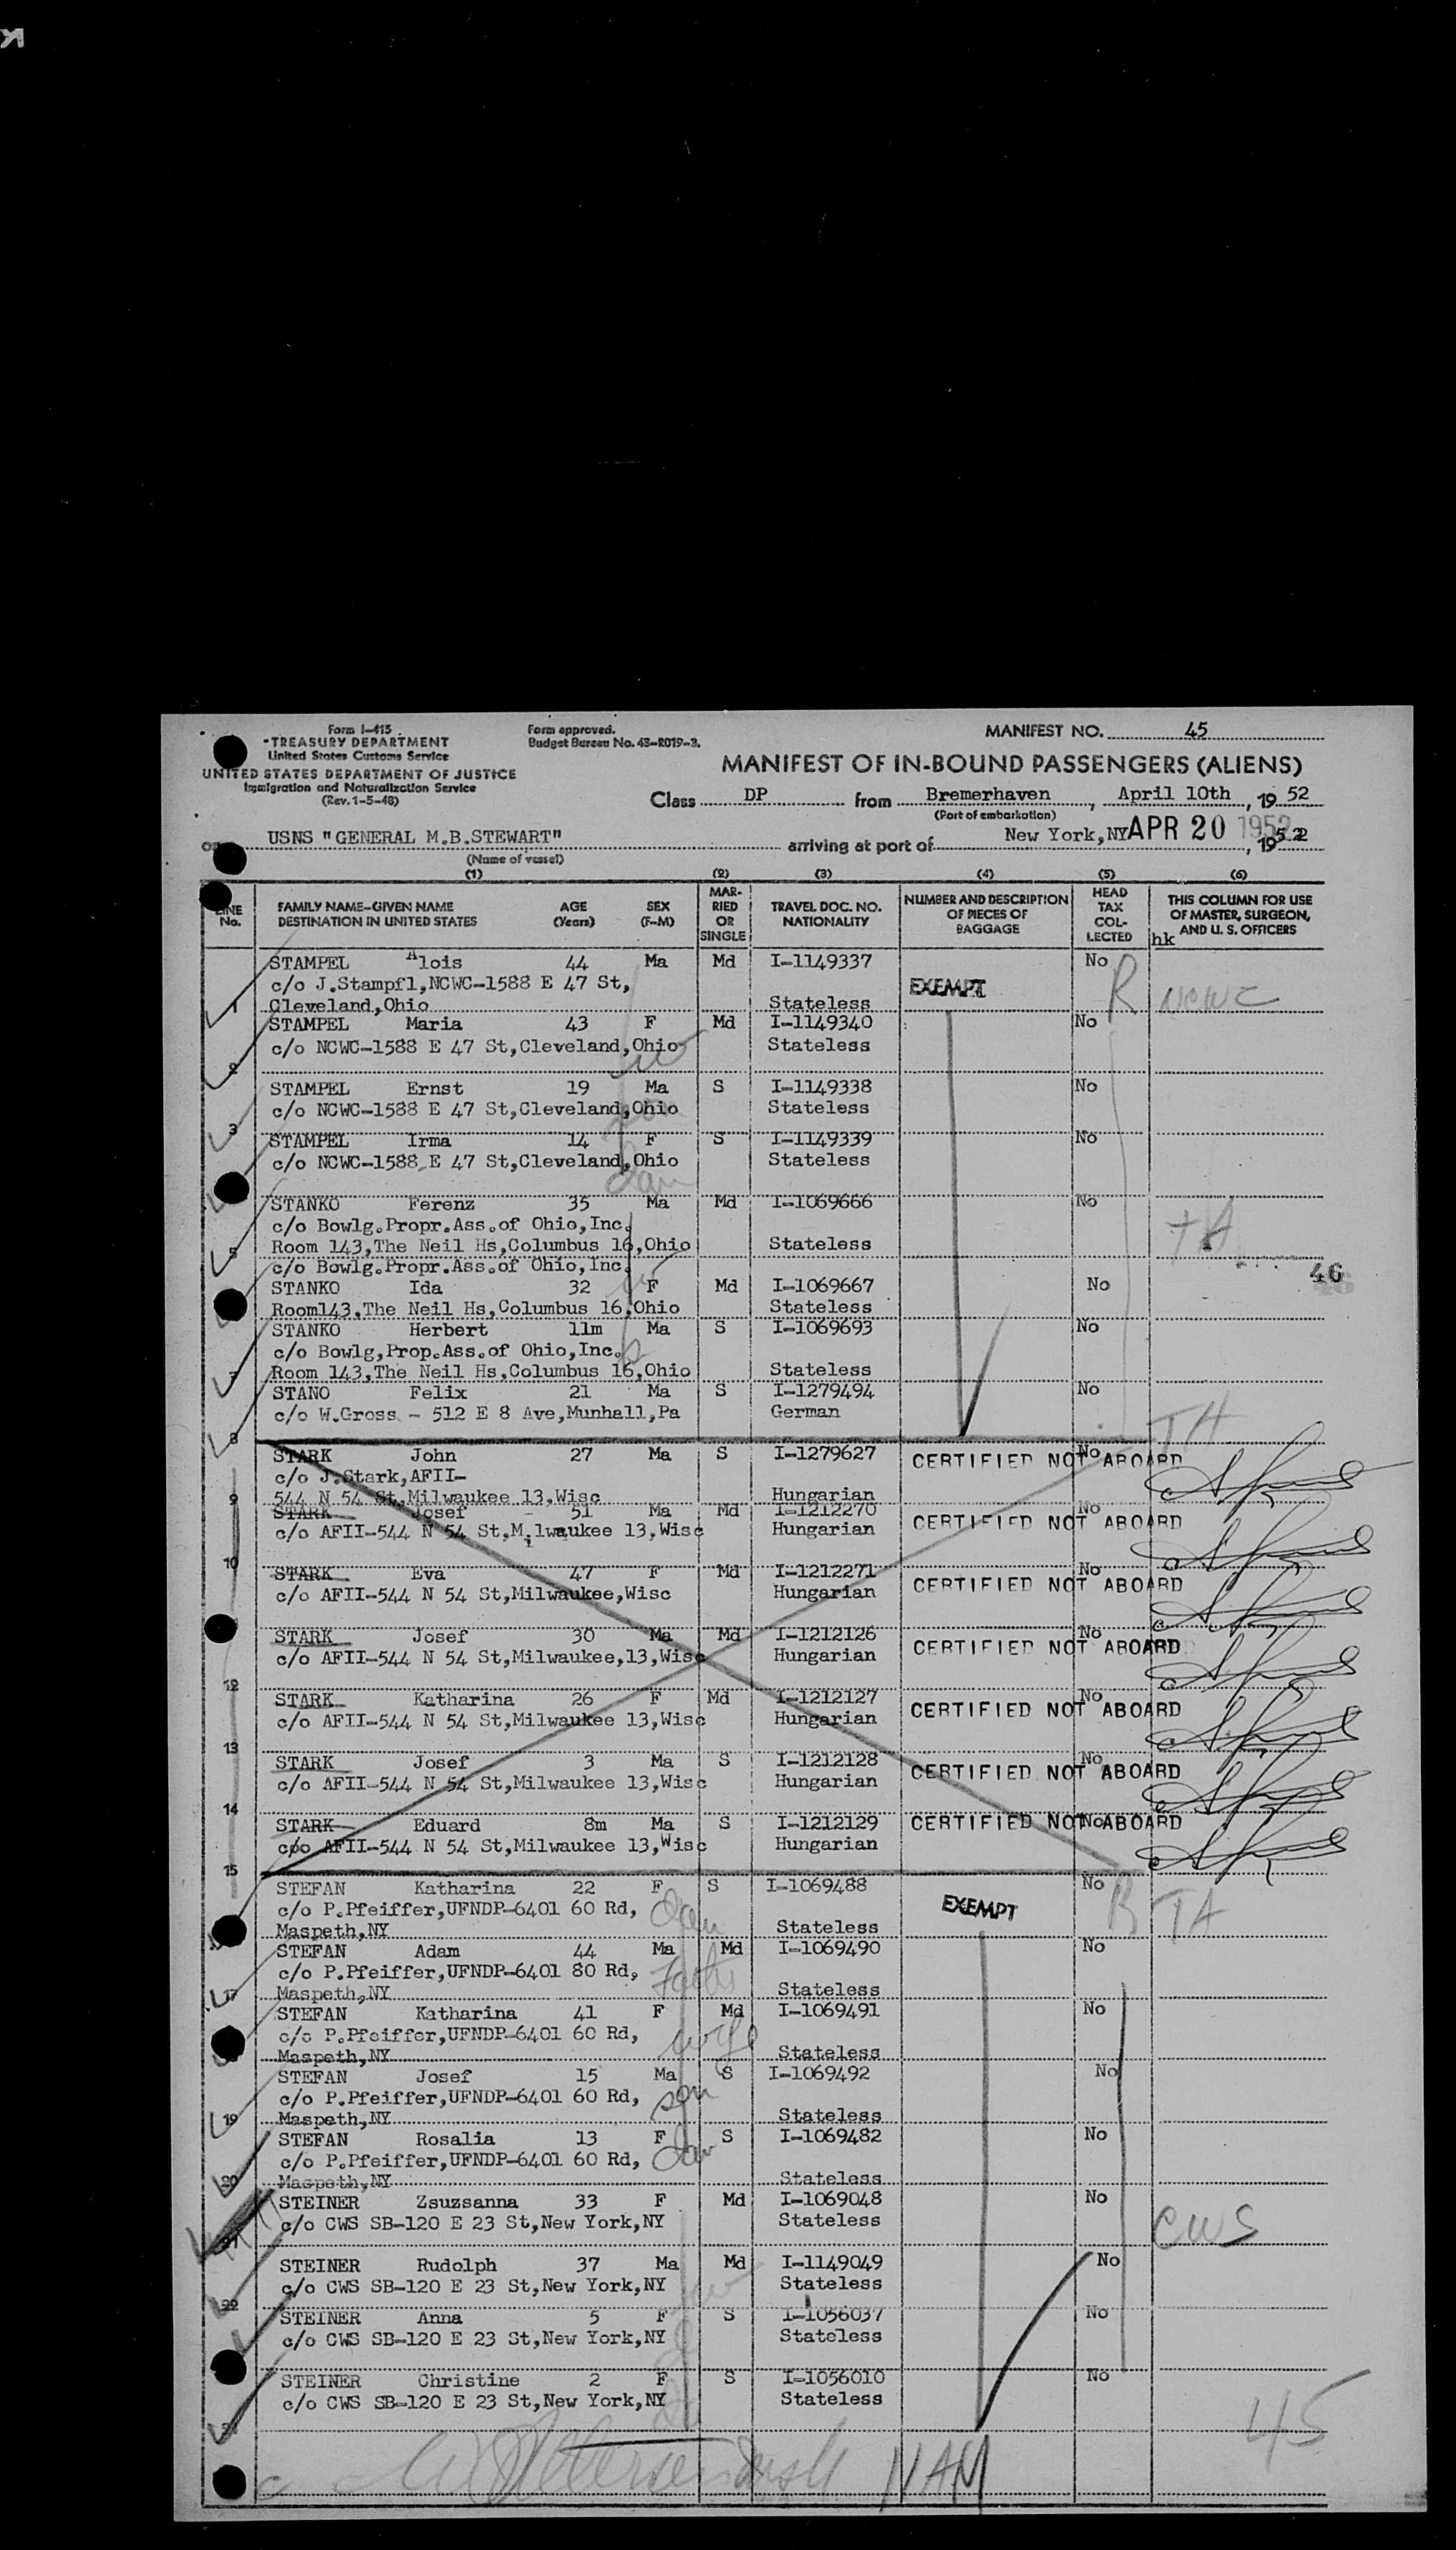 Form I-415
TREASURY DEPARTMENT
United States Customs Service
UNITED STATES DEPARTMENT OF JUSTICE
Immigration and Naturalization Service
(Rev. 1-5-48)
Form approved.
Budget Bureau No. 43-R019-3.
MANIFEST NO. 45
MANIFEST OF IN-BOUND PASSENGERS (ALIENS)
Class DP from Bremerhaven, April 10th, 19 52
(Port of embarkation)
USNS "GENERAL M.B.STEWART" arriving at port of New York, NY APR 20 1952, 19 52
(Name of vessel)
(1) (2) (3) (4) (5) (6)
LINE No. FAMILY NAME-GIVEN NAME DESTINATION IN UNITED STATES AGE (Years) SEX (F-M) MARRIED OR SINGLE TRAVEL DOC. NO. NATIONALITY NUMBER AND DESCRIPTION OF PIECES OF BAGGAGE HEAD TAX COLLECTED THIS COLUMN FOR USE OF MASTER, SURGEON, AND U. S. OFFICERS
hk
STAMPEL Alois 44 Ma Md I-1149337 No
c/o J.Stampfl,NCWC-1588 E 47 St, EXEMPT R NCWC
1 Cleveland,Ohio Stateless
STAMPEL Maria 43 F Md I-1149340 No
c/o NCWC-1588 E 47 St,Cleveland,Ohio Stateless
2
STAMPEL Ernst 19 Ma S I-1149338 No
c/o NCWC-1588 E 47 St,Cleveland,Ohio Stateless
3
STAMPEL Irma 14 F S I-1149339 No
c/o NCWC-1588 E 47 St,Cleveland,Ohio Stateless
STANKO Ferenz 35 Ma Md I-1069666 No
c/o Bowlg.Propr.Ass.of Ohio,Inc. TA
5 Room 143,The Neil Hs,Columbus 16,Ohio Stateless
c/o Bowlg.Propr.Ass.of Ohio,Inc. 46
STANKO Ida 32 F Md I-1069667 No
Room143.The Neil Hs,Columbus 16,Ohio Stateless
STANKO Herbert 11m Ma S I-1069693 No
c/o Bowlg,Prop.Ass.of Ohio,Inc.
7 Room 143,The Neil Hs,Columbus 16,Ohio Stateless
STANO Felix 21 Ma S I-1279494 No
c/o W.Gross - 512 E 8 Ave,Munhall,Pa German
8 TA
STARK John 27 Ma S I-1279627 CERTIFIED NOT ABOARD No
c/o J.Stark,AFII-
9 544 N 54 St.,Milwaukee 13,Wisc Hungarian
STARK Josef 51 Ma Md I-1212270 No
c/o AFII-544 N 54 St.Milwaukee 13,Wisc Hungarian CERTIFIED NOT ABOARD
10
STARK Eva 47 F Md I-1212271 No
c/o AFII-544 N 54 St,Milwaukee,Wisc Hungarian CERTIFIED NOT ABOARD
STARK Josef 30 Ma Md I-1212126 No
c/o AFII-544 N 54 St,Milwaukee,13,Wisc Hungarian CERTIFIED NOT ABOARD
12
STARK Katharina 26 F Md I-1212127 No
c/o AFII-544 N 54 St,Milwaukee 13,Wisc Hungarian CERTIFIED NOT ABOARD
13
STARK Josef 3 Ma S I-1212128 No
c/o AFII-544 N 54 St,Milwaukee 13,Wisc Hungarian CERTIFIED NOT ABOARD
14
STARK Eduard 8m Ma S I-1212129 CERTIFIED NOT ABOARD No
c/o AFII-544 N 54 St,Milwaukee 13,Wisc Hungarian
15
STEFAN Katharina 22 F S I-1069488 No
c/o P.Pfeiffer,UFNDP-6401 60 Rd, dau EXEMPT R TA
Maspeth,NY Stateless
STEFAN Adam 44 Ma Md I-1069490 No
c/o P.Pfeiffer,UFNDP-6401 80 Rd, Father
17 Maspeth,NY Stateless
STEFAN Katharina 41 F Md I-1069491 No
c/o P.Pfeiffer,UFNDP-6401 60 Rd, wife
Maspeth,NY Stateless
STEFAN Josef 15 Ma S I-1069492 No
c/o P.Pfeiffer,UFNDP-6401 60 Rd, son
19 Maspeth,NY Stateless
STEFAN Rosalia 13 F S I-1069482 No
c/o P.Pfeiffer,UFNDP-6401 60 Rd, dau
20 Maspeth,NY Stateless
STEINER Zsuzsanna 33 F Md I-1069048 No
c/o CWS SB-120 E 23 St,New York,NY Stateless CWS
21
STEINER Rudolph 37 Ma Md I-1149049 No
c/o CWS SB-120 E 23 St,New York,NY Stateless
22
STEINER Anna 5 F S I-1056037 No
c/o CWS SB-120 E 23 St,New York,NY Stateless
STEINER Christine 2 F S I-1056010 No
c/o CWS SB-120 E 23 St,New York,NY Stateless
45